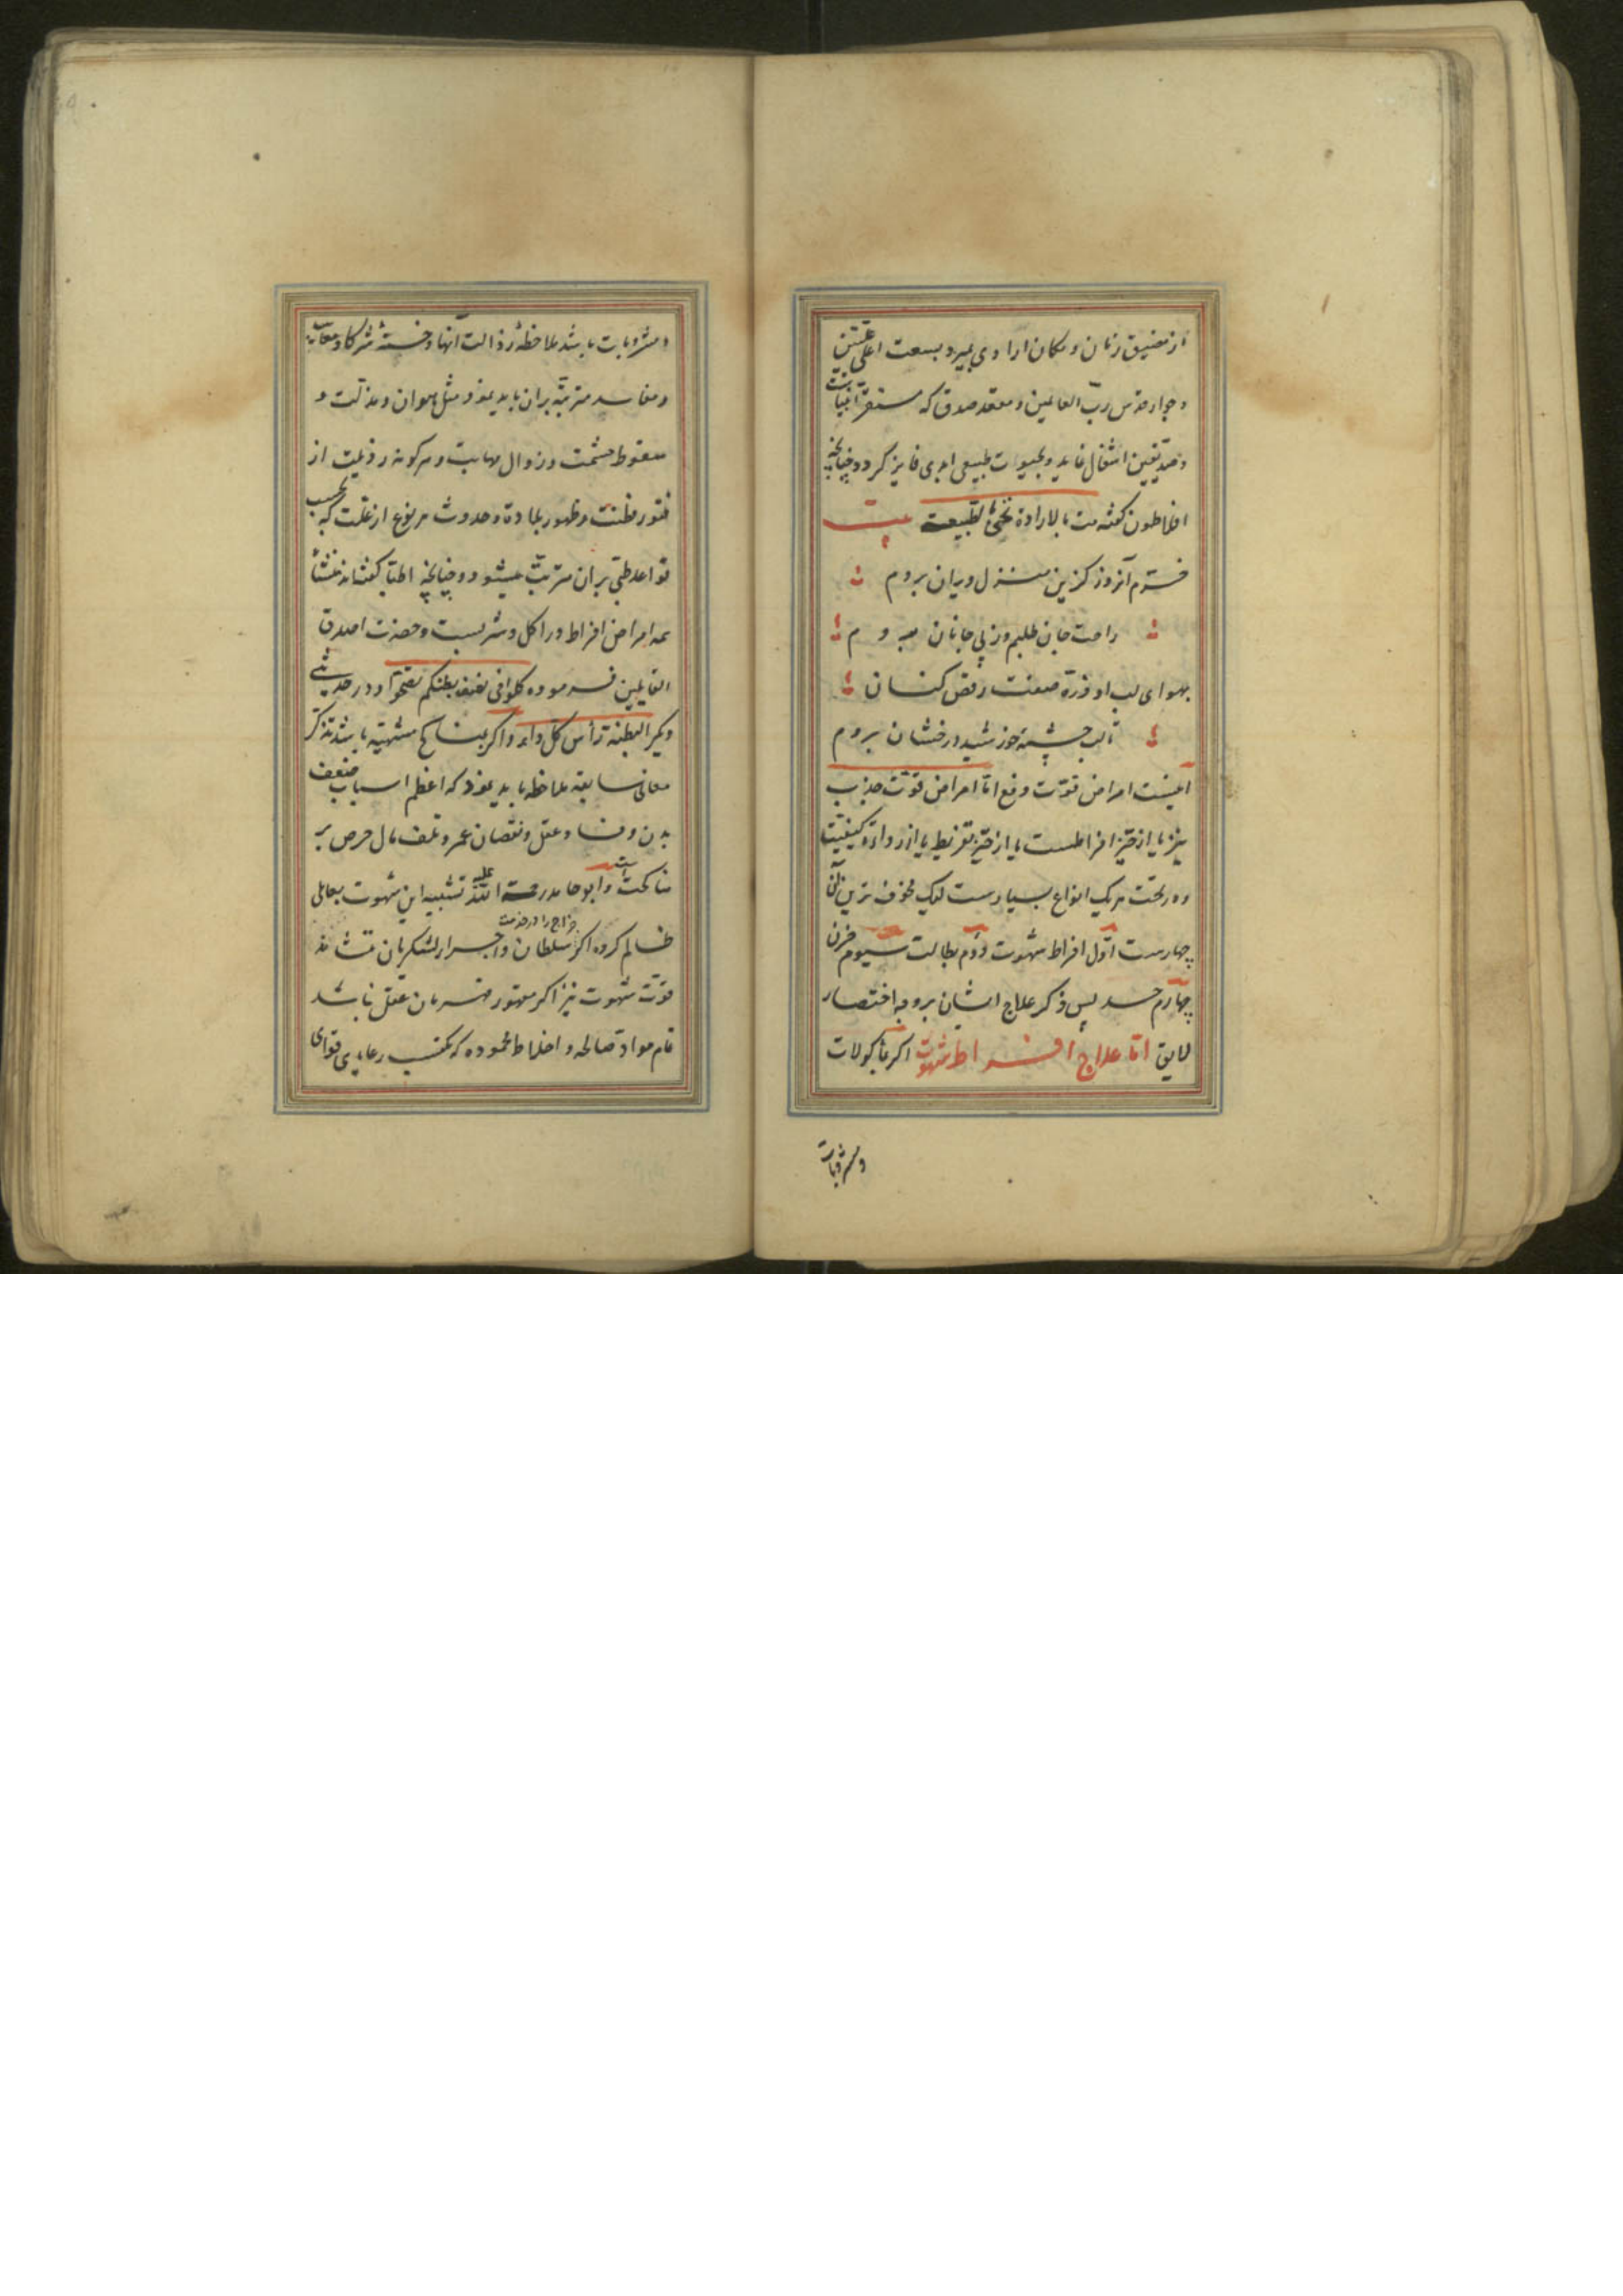 از مضیق زمان و مکان ارادی بمیرد و بسعت اعلی علیین
و جوار قدس رب العالمین و مقعد صدق که مستقر انبیاست
و صدیقین انتقال نماید و بحیوت طبیعی ابدی فایز گردد چنانچه
افلاطون گفته مت بالارادة تحیی بالطبیعة بیت
خرم آنروز کزین منزل ویران بروم
راحت جان طلبم وز پی جانان بروم
بهوای لب او ذره صفت رقص کنان
تا لب چشمهٔ خورشید درخشان بروم
اینست امراض قوت دفع اما امراض قوت جذب
نیز یا از حیز افراطست یا از حیز تفریط یا از رداءة کیفیت
و در تحت هر یک انواع بسیارست لیک مخوف ترین آنها
چهارست اول افراط شهوت دوم بطالت سیوم حزن
چهارم حسد پس ذکر علاج ایشان بر وجه اختصار
لایق اما علاج افراط شهوت اگر بمأکولات
ومشروبات
ومشروبات باشد ملاحظهٔ رذالت آنها و خست شرکا و معایب
و مفاسد مترتبه بران باید نمود مثل هوان و مذلت و
سقوط حشمت و زوال مهابت و هر گونه رذیلت از
فتور فطنت و ظهور بلادة و حدوث هر نوع از علت که بحسب
قواعد طبی بران مترتب میشود و چنانچه اطبا گفته‌اند منشأ
همه امراض افراط در اکل و شربست و حضرت اصدق
القایلین فرموده کلوا فی نصف بطنکم تصحوا و در حدیثی
دیگر البطنة رأس کل داء و اگر بمناکح مشتهیه باشد تذکر
معانی سابقه ملاحظه باید نمود که اعظم اسباب ضعف
بدن و فساد عقل و نقصان عمر و تلف مال حرص بر
مناکحت است و ابو حامد رحمة الله علیه تشبیه این شهوت بعاملی
ظالم کرده اگر سلطان او را در اخراج زجر از لشکریان نستاند
قوت شهوت نیز اگر مقهور فرمان عقل نباشد
تمام مواد صالحه و اخلاط محموده که مکتسب رعایای قوای